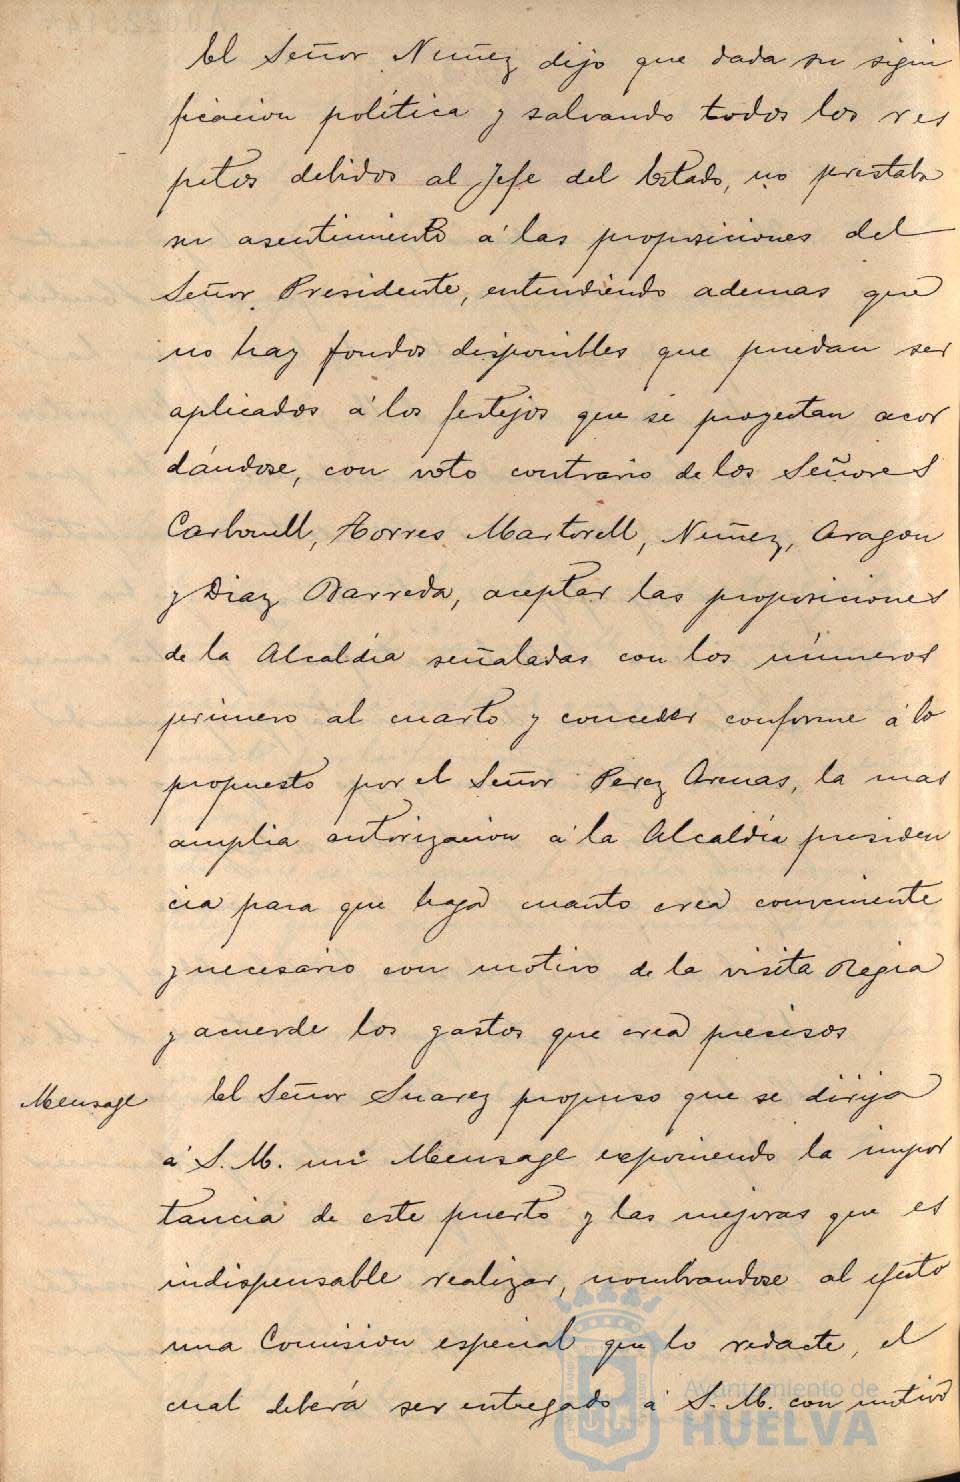 El Señor Nuñez dijo que dada su signi
ficacion politica y salvando todos los res
petos debidos al Jefe del Estado, no prestaba
su asentimiento á las proposiciones del
Señor Presidente, entendiendo ademas que
no hay fondos disponibles que puedan ser
aplicados á los festejos que se proyectan acor
dándose, con voto contrario de los Señores
Carbonell, Torres Martorell, Nuñez, Aragon
y Diaz Barreda, aceptar las proposiciones
de la Alcaldía señaladas con los números
primero al cuarto y conceder conforme á lo
propuesto por el Señor Perez Arenas, la mas
amplia autorizacion á la Alcaldía presiden
cia para que haga cuanto crea conveniente
y necesario con motivo de la visita Regia
y acuerde los gastos que crea precisos
Mensage
El Señor Suarez propuso que se dirija
á S. M. un Mensage exponiendo la impor
tancia de este puerto y las mejoras que es
indispensable realizar, nombrandose al efecto
una Comision especial que lo redacte, el
cual deberá ser entregado á S. M. con motivo
Ayuntamiento de
HUELVA